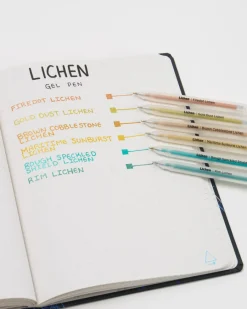 LICHEN
GEL PEN
FIREDOT LICHEN
GOLD DUST LICHEN
BROWN COBBLESTONE
LICHEN
MARITIME SUNBURST
LICHEN
ROUGH SPECKLED
SHIELD LICHEN
RIM LICHEN